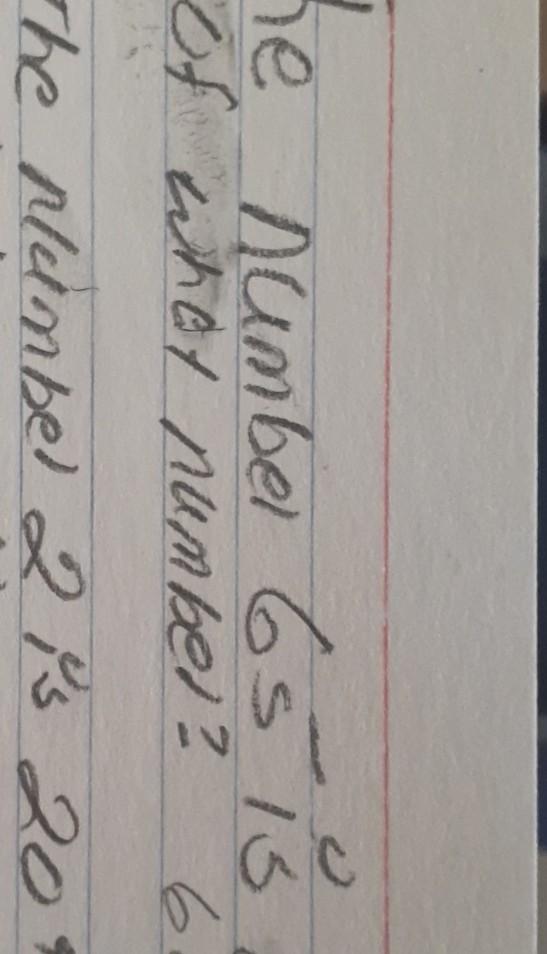 he number 65 is
of what number? 6
the number 2 is 20